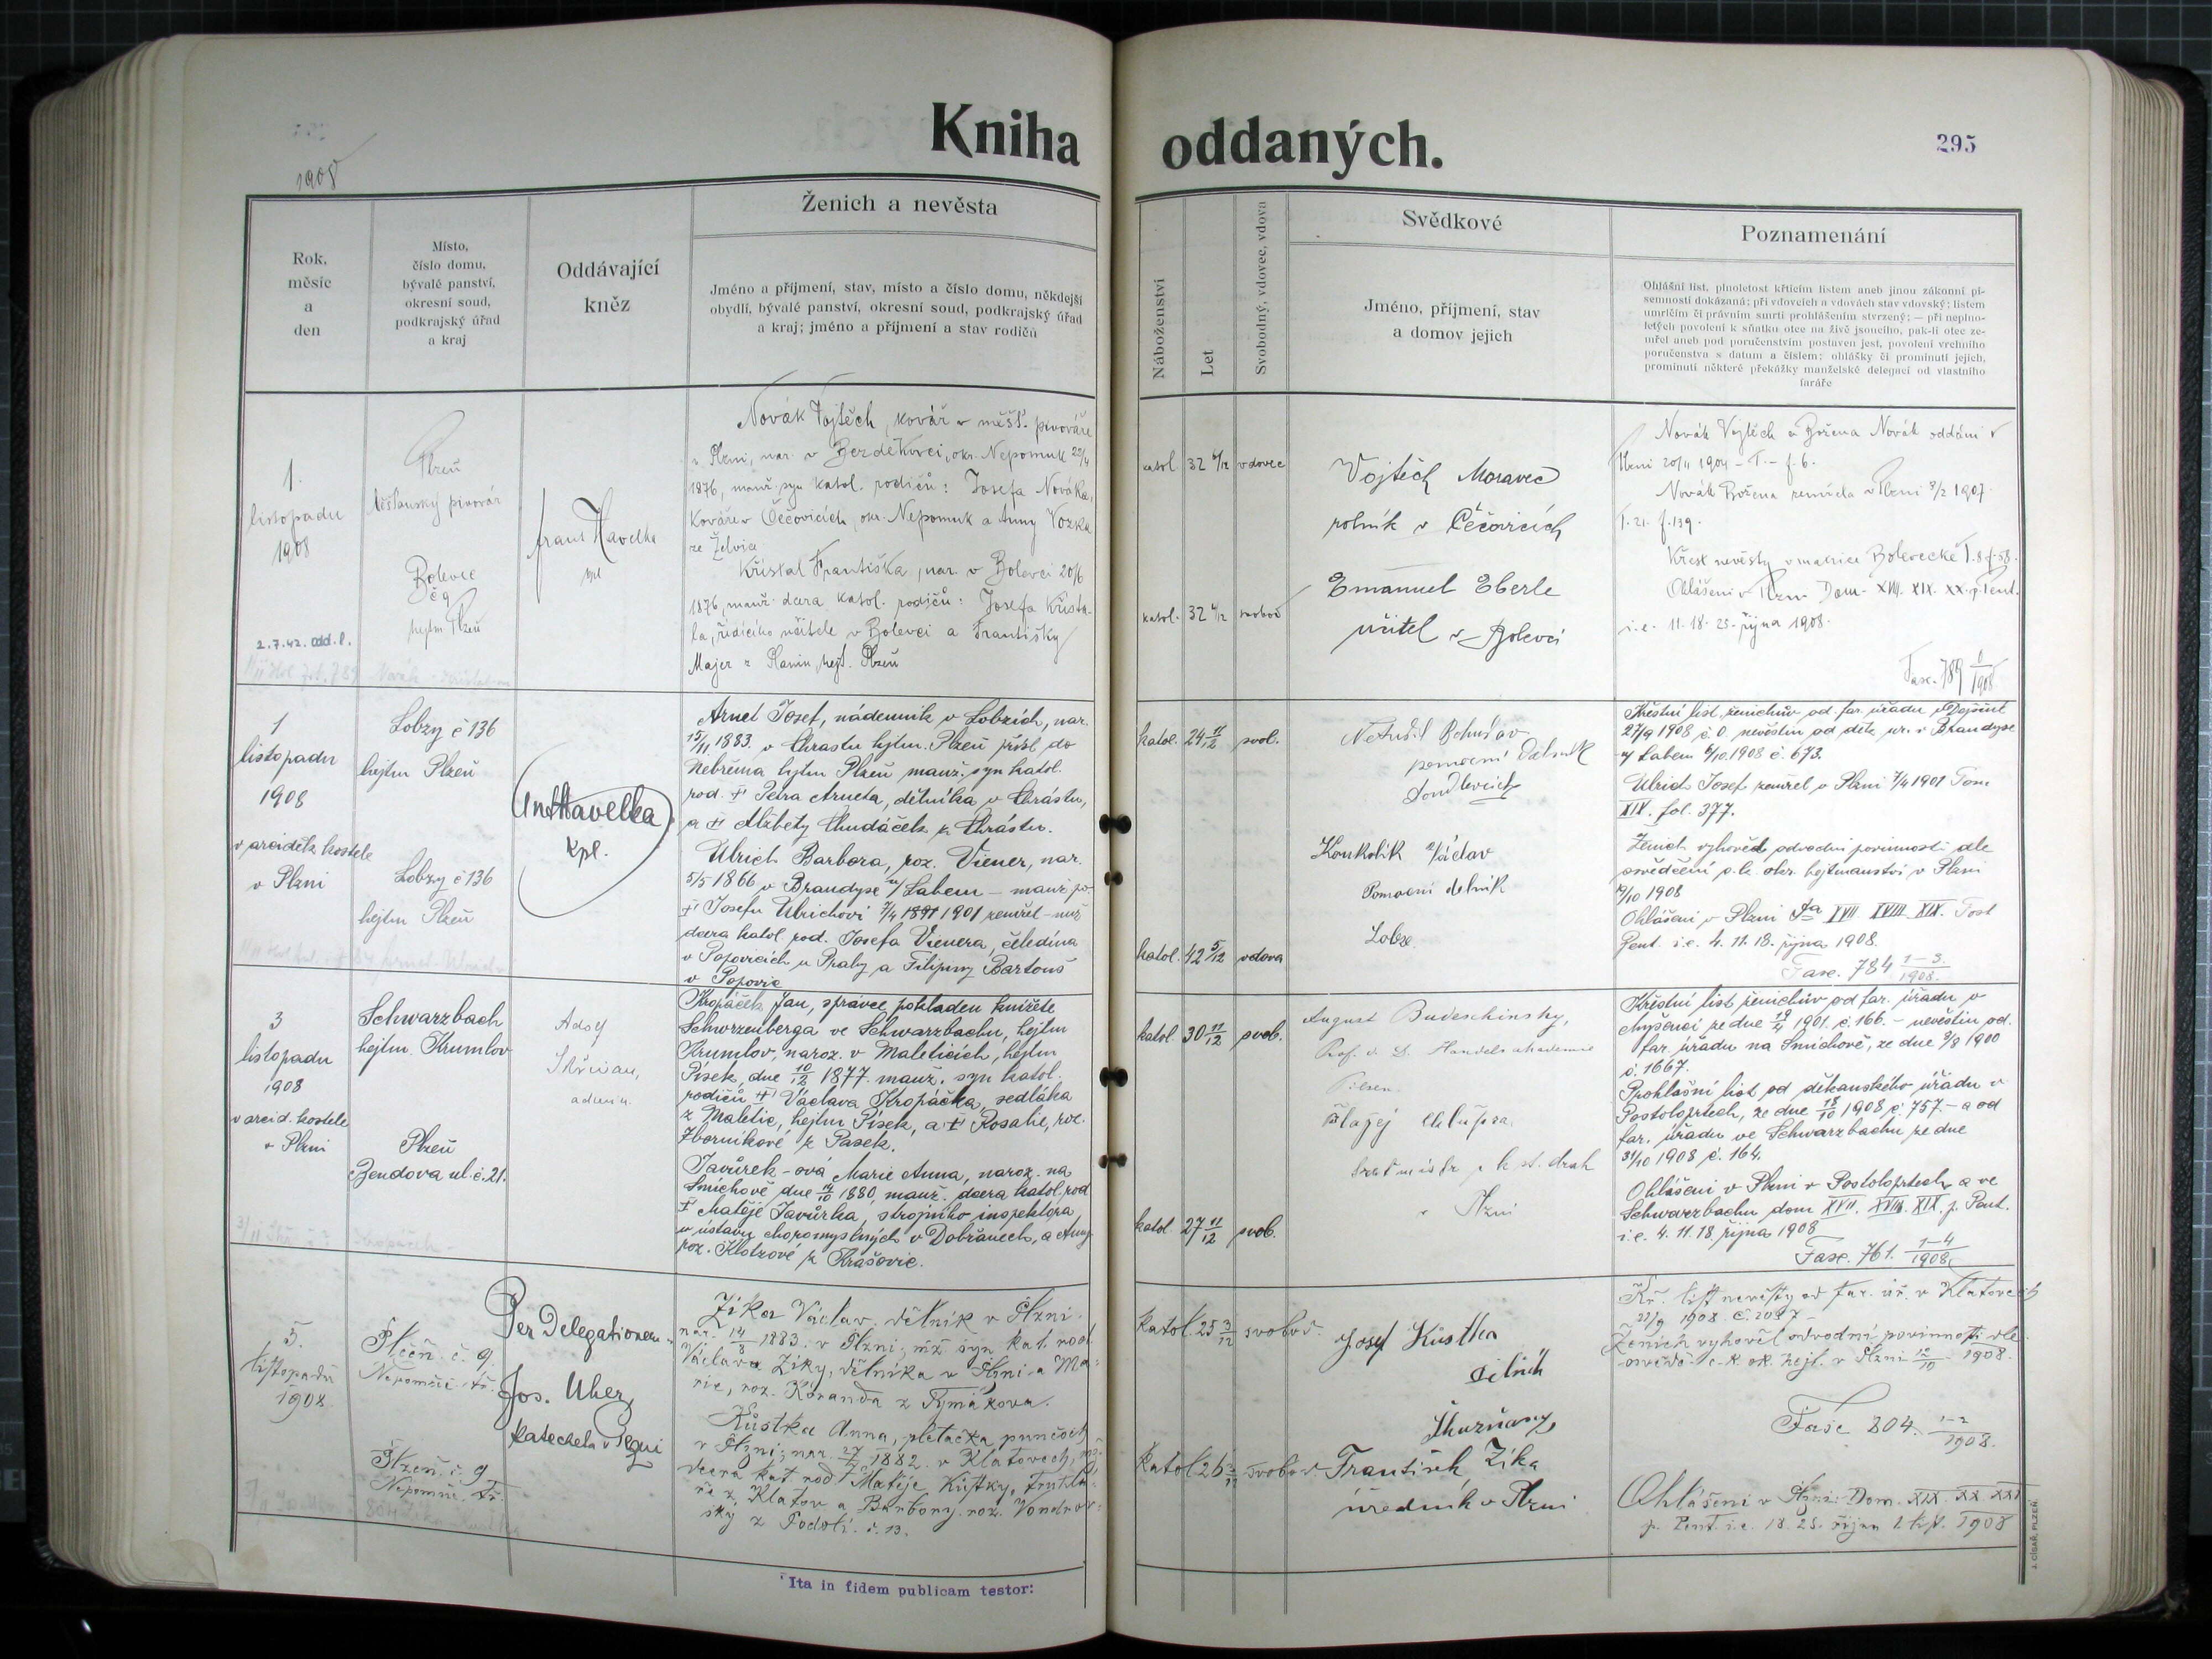 Kniha oddaných.
295
1908
Rok,
měsíc
a
den
Místo,
číslo domu,
bývalé panství,
okresní soud,
podkrajský úřad
a kraj
Oddávající
kněz
Ženich a nevěsta
Jméno a příjmení, stav, místo a číslo domu, někdejší
obydlí, bývalé panství, okresní soud, podkrajský úřad
a kraj; jméno a příjmení a stav rodičů
Náboženství
Let
Svobodný, vdovec, vdova
Svědkové
Jméno, příjmení, stav
a domov jejich
Poznamenání
Ohlášní list, plnoletost křticím listem aneb jinou zákonní pí-
semností dokázaná; při vdovcích a vdovách stav vdovský; listem
umrlčím či právním smrti prohlášením stvrzený; — při neplno-
letých povolení k sňatku otce na živě jsoucího, pak-li otec ze-
mřel aneb pod poručenstvím postaven jest, povolení vrchního
poručenstva s datum a číslem; ohlášky či prominutí jejich,
prominutí některé překážky manželské delegací od vlastního
faráře
1.
listopadu
1908
2.7.42. odd. l.
Plzeň
Měšťanský pivovár
Bolevec
č 9
hejtm Plzeň
Frant Havelka
kpl
Novák Vojtěch, kovář v měšť. pivováře
v Plzni, nar. v Berděkovci, okr. Nepomuk 22/4
1876, manž. syn katol. rodičů: Josefa Nováka,
kováře v Čečovicích, okr. Nepomuk a Anny Vozka
ze Želvic
Křístal Františka, nar. v Bolevci 20/6
1876, manž. dcera katol. rodičů: Josefa Křísta-
la, řídícího učitele v Bolevci a Františky
Majer z Planin, hejt. Plzeň
katol. 32 6/12 vdovec
katol. 32 4/12 svobod
Vojtěch Moravec
rolník v Čečovicích
Emanuel Eberle
učitel v Bolevci
Novák Vojtěch a Božena Novák oddáni v
Plzni 20/11 1904 - T. - f. 6.
Novák Božena zemřela v Plzni 8/2 1907.
T. 21. f. 139.
Křest nevěsty v matrice Bolevecké T. 8 f. 58.
Ohlášeni v Plzni Dom. XVIII. XIX. XX. p. Pent.
i. e. 11. 18. 25. října 1908.
Fasc. 789 0/1908
1
listopadu
1908
v arciděk. kostele
v Plzni
Lobzy č 136
hejtm Plzeň
Lobzy č 136
hejtm Plzeň
Ant Havelka
kpl.
Arnet Josef, nádenník v Lobzích, nar.
15/11. 1883. v Chrástu hejtm. Plzeň přísl. do
Nebřema hejtm Plzeň manž. syn katol.
rod. † Petra Arneta, dělníka v Chrástu,
a † Alžbety Chudáček z Chrástu.
Ulrich Barbora, roz. Viener, nar.
5/5 1866 v Brandýse n/Labem — manž po
† Josefu Ulrichovi 7/4 1891 1901 zemřel — manž
dcera katol. rod. Josefa Vienera, čeledína
v Popovicích u Prahy a Filipiny Bartoňš
v Popovic
katol. 24 11/12 svob.
katol. 42 5/12 vdova
Netušil Bohuslav
pomocní Dělník
Doudlevcích
Koukolík Václav
Pomocní dělník
Lobze
Křestní list ženichův od far. úřadu v Dejšině
27/9 1908 č. 0. nevěstin od děk. úř. v Brandýse
n/ Labem 6/10. 1908 č. 673.
Ulrich Josef zemřel v Plzni 7/4 1901 Tom.
XIX. fol. 377.
Ženich vyhověl odvodní povinnosti dle
osvědčení c. k. okr. hejtmanství v Plzni
19/10 1908
Ohlášeni v Plzni Dca XVII XVIII XIX. Post
Pent. i. e. 4. 11. 18. října 1908.
Fasc. 784 1-3./1908.
3
listopadu
1908
v arcid. kostele
v Plzni
Schwarzbach
hejtm. Krumlov
Plzeň
Bendova ul. č. 21.
Adolf
Skřivan,
admin.
Kropáček Jan, správce pokladen knížete
Schwarzenberga ve Schwarzbachu, hejtm
Krumlov, naroz. v Maleticích, hejtm
Písek, dne 10/12 1877. manž. syn katol.
rodičů † Václava Kropáčka, sedláka
z Maletic, hejtm Písek, a † Rosalie, roz.
Zborníkové z Pasek.
Javůrek-ová Marie Anna, naroz. na
Smíchově dne 14/10 1880, manž. dcera katol. rod
† Matěje Javůrka, strojního inspektora
v ústavu choromyslných v Dobřanech, a Anny
roz. Klotzové z Krašovic.
katol. 30 11/12 svob.
katol. 27 11/12 svob.
August Budeschinsky,
Prof. d. D. Handelsakademie
Pilsen
Blažej Chlupsa
tratmistr c k st. drah
v Plzni
Křestní list ženichův od far. úřadu v
Myšenci ze dne 19/4 1901. č. 166. — nevěstin od.
far. úřadu na Smíchově, ze dne 9/8 1900
č. 1667.
Prohlašní list od děkanského úřadu v
Postoloprtech, ze dne 18/10 1908 č. 757. — a od
far. úřadu ve Schwarzbachu ze dne
31/10 1908 č. 164.
Ohlášeni v Plzni v Postoloprtech a ve
Schwarzbachu dom XVII. XVIII. XIX. p. Pent.
i. e. 4. 11. 18. října 1908
Fasc. 761. 1-4/1908.
5.
listopadu
1908.
Plzeň. č. 9.
Nepomuc. tř.
Plzeň. č. 9
Nepomuc. tř.
Per Delegationem
Jos. Uher,
katecheta v Plzni
Zika Václav. dělník v Plzni.
nar. 14/8 1883. v Plzni; mž. syn kat. rod
Václava Ziky, dělníka v Plzni a Ma-
rie, roz. Koranda z Tymákova.
Kůstka Anna, pletačka punčoch
v Plzni; nar. 27/7 1882. v Klatovech,
dcera kat. rod. † Matěje Kůstky,
z Klatov a Barbory roz. Vondrov-
sky z Podolí. č. 13.
katol. 25 3/12 svobod.
katol. 26 3/12 svobod.
Josef Kůstka
dělník
Skurňany
František Zika
úředník v Plzni
Kř. list nevěsty od far. úř. v Klatovech
22/9 1908. č. 2097 —
Ženich vyhověl odvodní povinnosti dle
osvědč. c. k. ok. hejt. v Plzni 12/10 - 1908.
Fasc 804. 1-2/1908.
Ohlášeni v Plzni: Dom. XIX. XX. XXI
p. Pent. i. e. 18. 25. říjn. 1 list. 1908
Ita in fidem publicam testor:
J. CÍSAŘ, PLZEŇ.